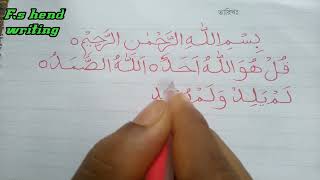 F.s hend
writing
তারিখঃ
بِسْمِ اللهِ الرَّحْمٰنِ الرَّحِيْمِ ○
قُلْ هُوَ اللهُ اَحَدٌ ○ اَللهُ الصَّمَدُ ○
لَمْ يَلِدْ وَلَمْ